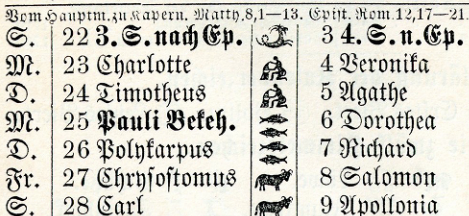 Vom Hauptm. zu Kapern. Matth. 8,1—13. Epist. Rom. 12,17—21.
S. 22 3. S. nach Ep. 3 4. S. n. Ep.
M. 23 Charlotte 4 Veronika
D. 24 Timotheus 5 Agathe
M. 25 Pauli Bekeh. 6 Dorothea
D. 26 Polykarpus 7 Richard
Fr. 27 Chrysostomus 8 Salomon
S. 28 Carl 9 Apollonia